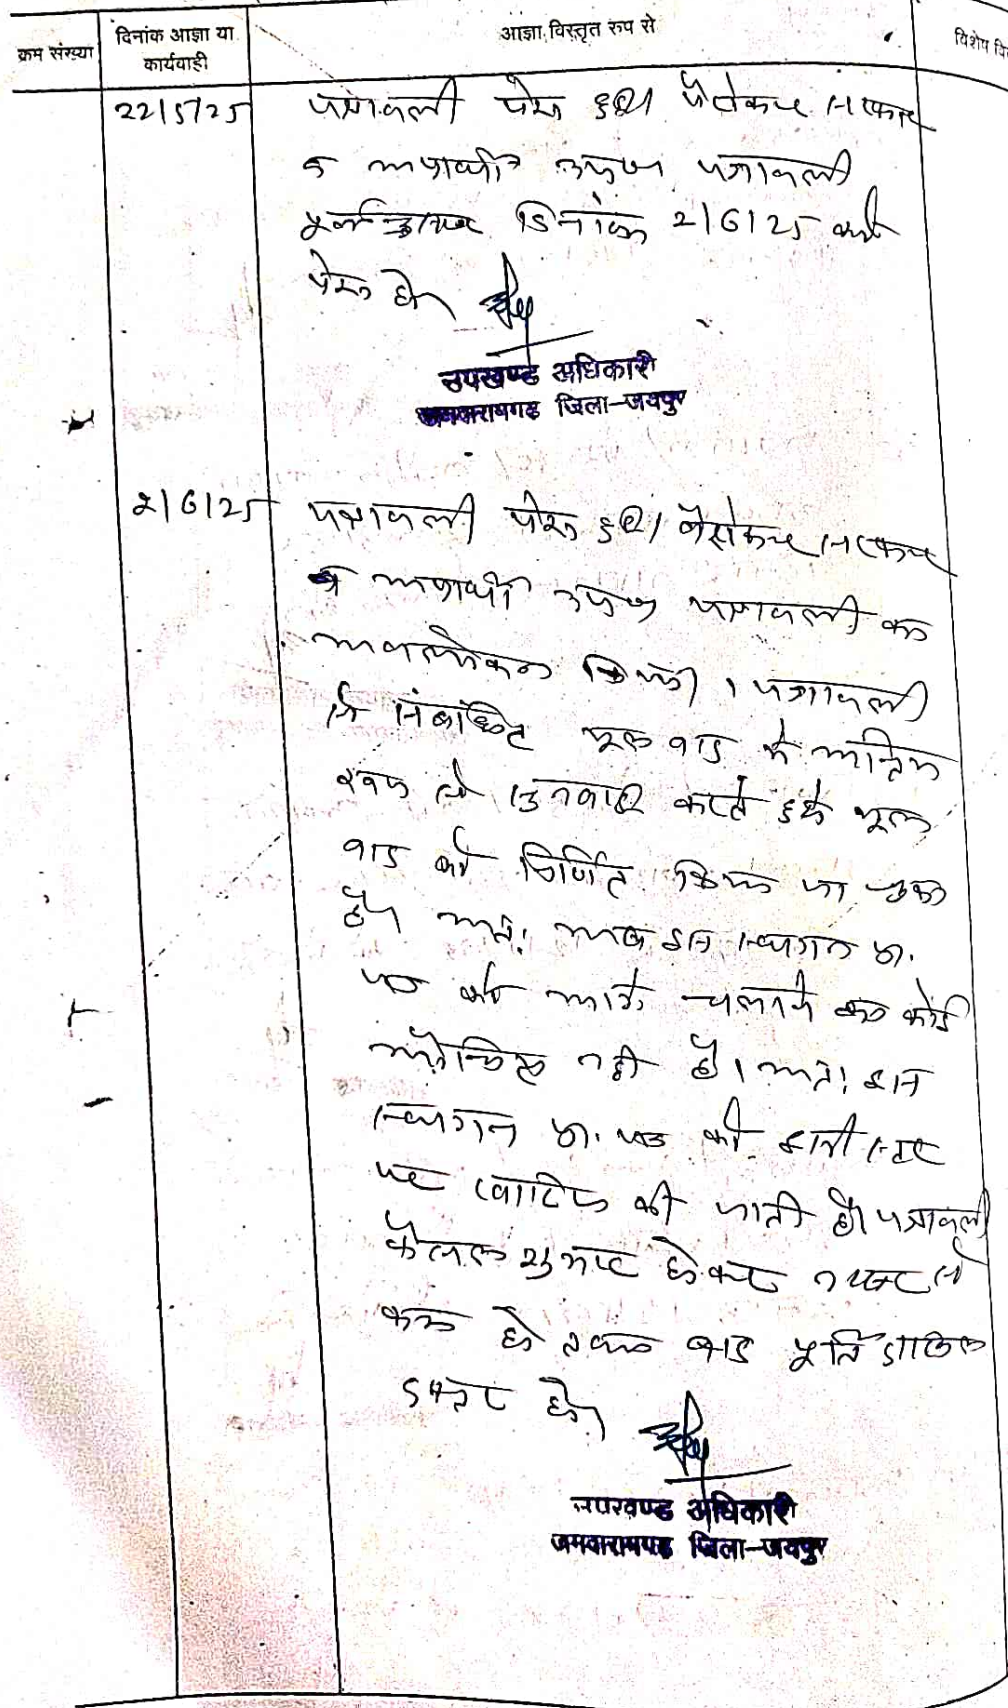 क्रम संख्या
दिनांक आज्ञा या कार्यवाही
आज्ञा विस्तृत रुप से
विशेष वि
22/5/25
पत्रावली पेश हुई। पैरोकार सरकार
व अप्रार्थी उप० पत्रावली
पूर्वानुसार दिनांक 2/6/25 को
पेश हो।
उपखण्ड अधिकारी
जमवारामगढ जिला-जयपुर
2/6/25
पत्रावली पेश हुई। पैरोकार सरकार
व अप्रार्थी उप० पत्रावली का
अवलोकन किया। पत्रावली
से संबंधित मूल वाद में अन्तिम
रूप से सुनवाई करते हुये मूल
वाद को निर्णित किया जा चुका
है। अतः अब इस स्थगन प्रा.
पत्र को आगे चलाने का कोई
औचित्य नहीं है। अतः इस
स्थगन प्रा. पत्र को इसी स्तर
पर खारिज की जाती है। पत्रावली
फैसल शुमार होकर नम्बर से
कम हो तथा बाद पूर्ति दाखिल
दफ्तर हो।
उपखण्ड अधिकारी
जमवारामगढ जिला-जयपुर